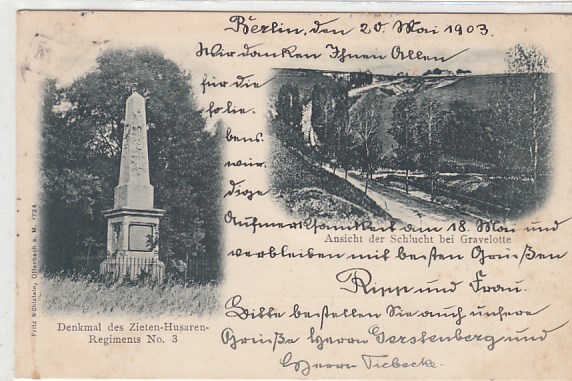 Berlin, den 20. Mai 1903.
Wir danken Ihnen Allen
für die
so lie-
bens-
wür-
dige
Aufmerksamkeit am 18. Mai und
verbleiben mit besten Grüßen
und Frau.
Bitte bestellen Sie auch unsere
Grüße Herrn Gerstenberg und
Herrn Tiebecke.
Ansicht der Schlucht bei Gravelotte
Denkmal des Zieten-Husaren-
Regiments No. 3
Fritz Mühlstein, Offenbach a. M. 1724